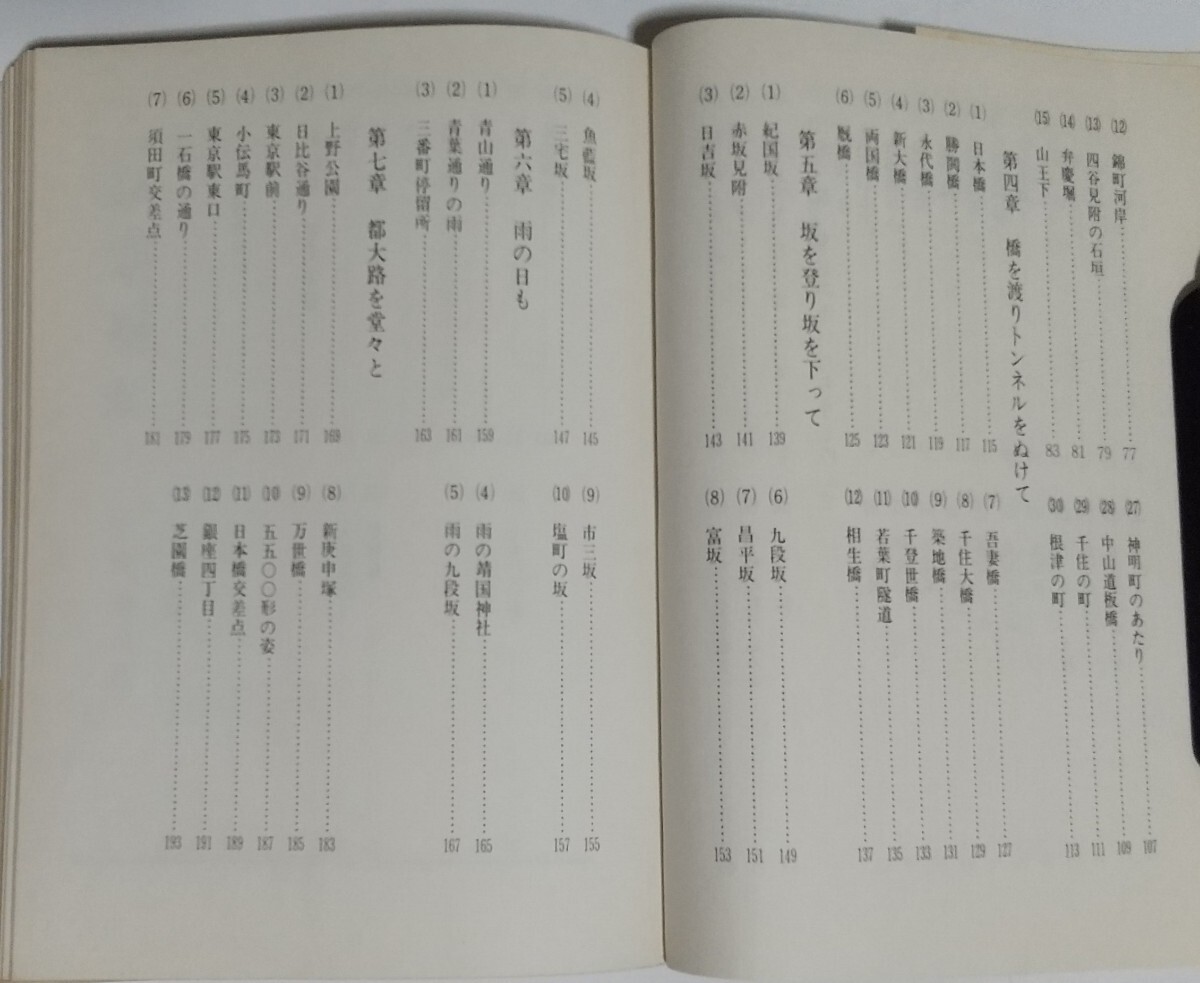 ⑿ 錦町河岸……77
⒀ 四谷見附の石垣……79
⒁ 弁慶堀……81
⒂ 山王下……83
(27) 神明町のあたり……107
(28) 中山道板橋……109
(29) 千住の町……111
(30) 根津の町……113
第四章 橋を渡りトンネルをぬけて
⑴ 日本橋……115
⑵ 勝鬨橋……117
⑶ 永代橋……119
⑷ 新大橋……121
⑸ 両国橋……123
⑹ 厩橋……125
⑺ 吾妻橋……127
⑻ 千住大橋……129
⑼ 築地橋……131
⑽ 千登世橋……133
⑾ 若葉町隧道……135
⑿ 相生橋……137
第五章 坂を登り坂を下って
⑴ 紀国坂……139
⑵ 赤坂見附……141
⑶ 日吉坂……143
⑹ 九段坂……149
⑺ 昌平坂……151
⑻ 富坂……153
⑷ 魚籃坂……145
⑸ 三宅坂……147
⑼ 市三坂……155
⑽ 塩町の坂……157
第六章 雨の日も
⑴ 青山通り……159
⑵ 青葉通りの雨……161
⑶ 三番町停留所……163
⑷ 雨の靖国神社……165
⑸ 雨の九段坂……167
第七章 都大路を堂々と
⑴ 上野公園……169
⑵ 日比谷通り……171
⑶ 東京駅前……173
⑷ 小伝馬町……175
⑸ 東京駅東口……177
⑹ 一石橋の通り……179
⑺ 須田町交差点……181
⑻ 新庚申塚……183
⑼ 万世橋……185
⑽ 五五〇〇形の姿……187
⑾ 日本橋交差点……189
⑿ 銀座四丁目……191
⒀ 芝園橋……193